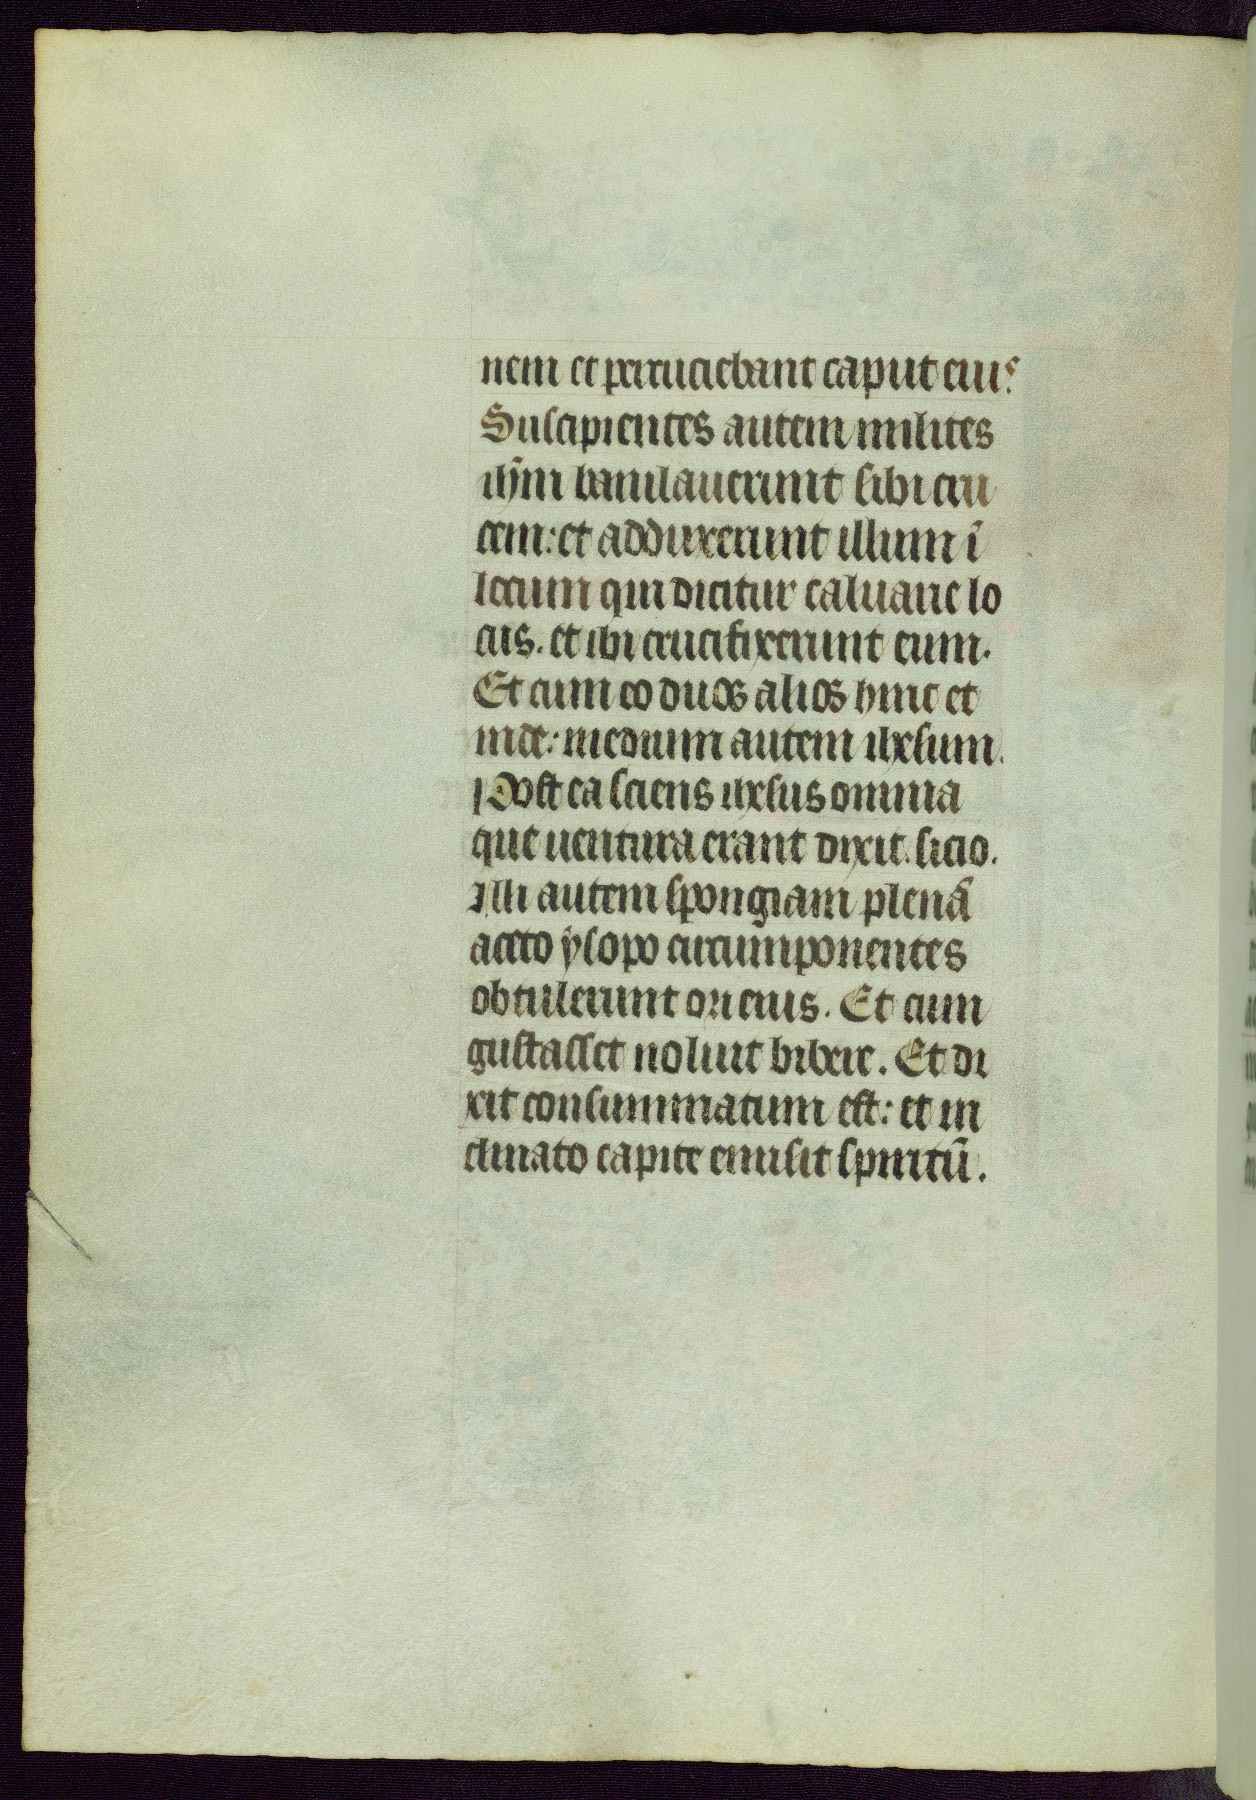 nem et percuciebant caput eius
Suscipientes autem milites
ihm̄ baiulauerunt sibi cru
cem: et adduxerunt illum ī
locum qui dicitur caluarie lo
cus. et ibi crucifixerunt eum.
Et cum eo duos alios hinc et
inde: medium autem ihesum.
Post ea sciens ihesus omnia
que uentura erant dixit. sicio.
Illi autem spongiam plenā
aceto ẏsopo circumponentes
obtulerunt ori eius. Et cum
gustasset noluit bibere. Et di
xit consummatum est: et in
clinato capite emisit spiritū.